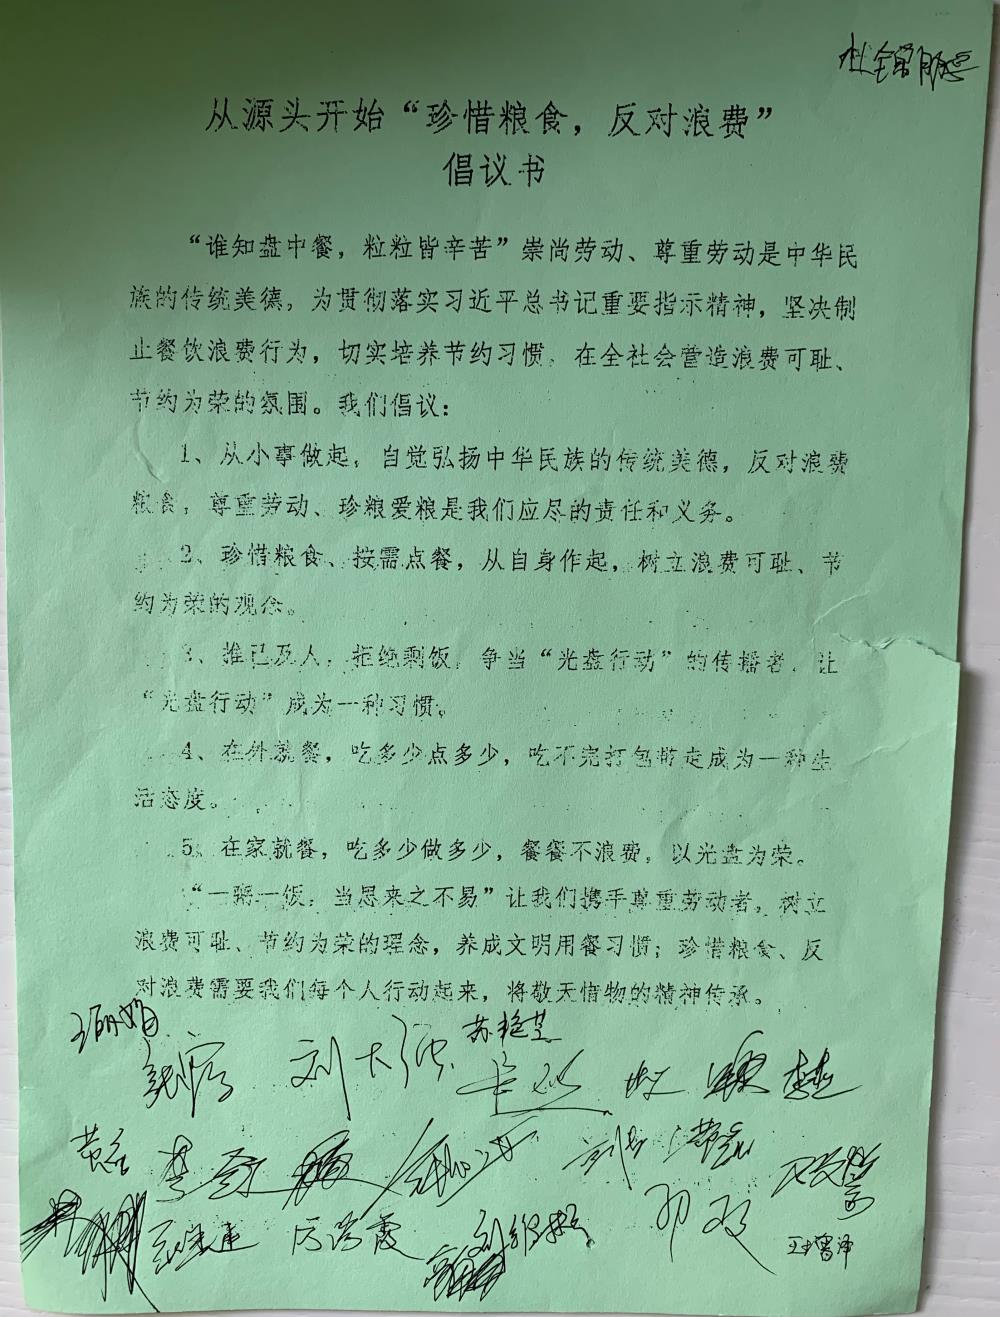 从源头开始“珍惜粮食，反对浪费”
倡议书
“谁知盘中餐，粒粒皆辛苦”崇尚劳动、尊重劳动是中华民
族的传统美德，为贯彻落实习近平总书记重要指示精神，坚决制
止餐饮浪费行为，切实培养节约习惯，在全社会营造浪费可耻、
节约为荣的氛围。我们倡议：
1、从小事做起，自觉弘扬中华民族的传统美德，反对浪费
粮食，尊重劳动、珍粮爱粮是我们应尽的责任和义务。
2、珍惜粮食、按需点餐，从自身作起，树立浪费可耻、节
约为荣的观念。
3、推已及人，拒绝剩饭，争当“光盘行动”的传播者，让
“光盘行动”成为一种习惯。
4、在外就餐，吃多少点多少，吃不完打包带走成为一种生
活态度。
5、在家就餐，吃多少做多少，餐餐不浪费，以光盘为荣。
“一粥一饭，当思来之不易”让我们携手尊重劳动者，树立
浪费可耻、节约为荣的理念，养成文明用餐习惯；珍惜粮食、反
对浪费需要我们每个人行动起来，将敬天惜物的精神传承。
苏艳芝
刘大强